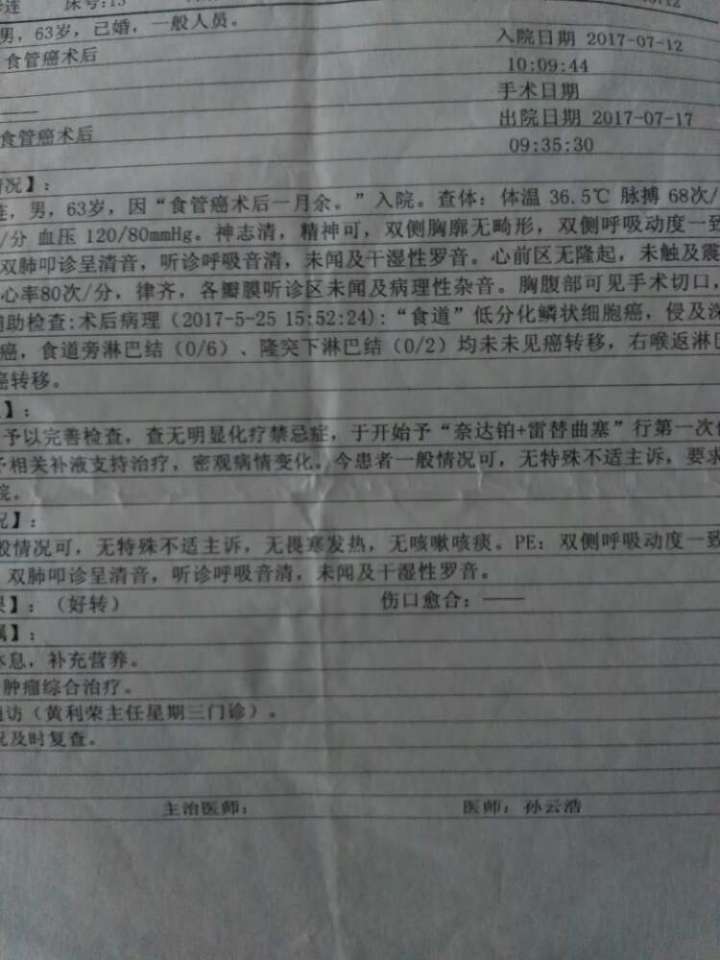 连 床号:13
男，63岁，已婚，一般人员。
入院日期 2017-07-12
食管癌术后
10:09:44
手术日期
出院日期 2017-07-17
食管癌术后
09:35:30
情况】：
连，男，63岁，因“食管癌术后一月余。”入院。查体：体温 36.5℃ 脉搏 68次/
/分 血压 120/80mmHg。神志清，精神可，双侧胸廓无畸形，双侧呼吸动度一致
双肺叩诊呈清音，听诊呼吸音清，未闻及干湿性罗音。心前区无隆起，未触及震
心率80次/分，律齐，各瓣膜听诊区未闻及病理性杂音。胸腹部可见手术切口，
辅助检查:术后病理（2017-5-25 15:52:24):“食道”低分化鳞状细胞癌，侵及深
癌，食道旁淋巴结（0/6）、隆突下淋巴结（0/2）均未未见癌转移，右喉返淋巴
癌转移。
】：
予以完善检查，查无明显化疗禁忌症，于开始予“奈达铂+雷替曲塞”行第一次化
予相关补液支持治疗，密观病情变化。今患者一般情况可，无特殊不适主诉，要求
院。
况】：
般情况可，无特殊不适主诉，无畏寒发热，无咳嗽咳痰。PE：双侧呼吸动度一致
双肺叩诊呈清音，听诊呼吸音清，未闻及干湿性罗音。
果】：（好转）
伤口愈合：——
嘱】：
休息，补充营养。
肿瘤综合治疗。
随访（黄利荣主任星期三门诊）。
况及时复查。
主治医师：
医师：孙云浩